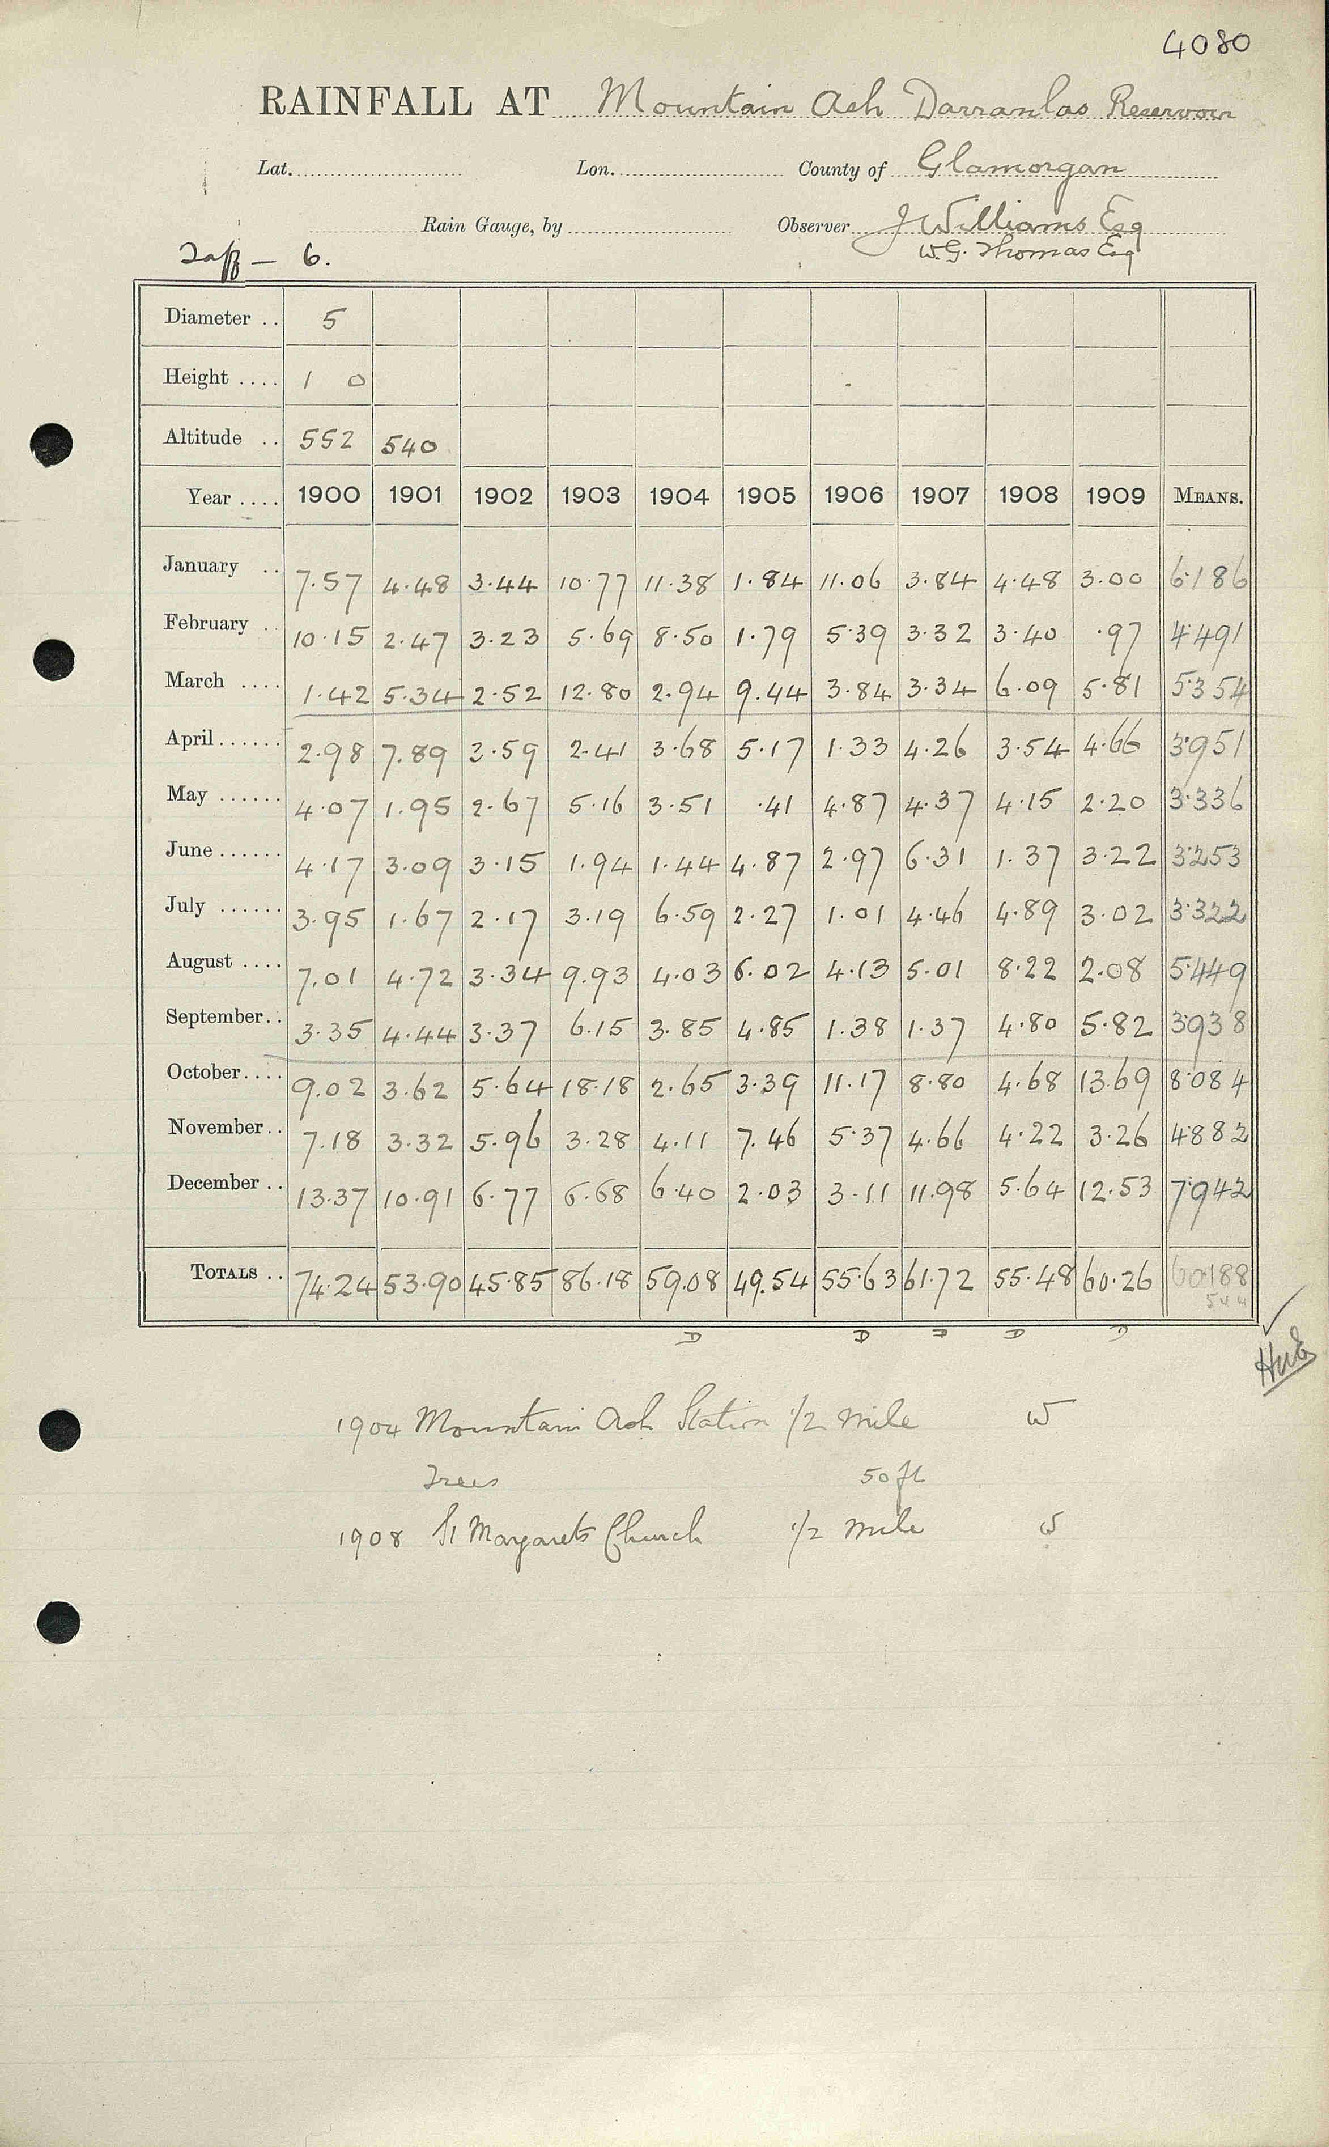 4080
RAINFALL AT Mountain Ash Darranlas Reservoir
Lat. Lon. County of Glamorgan
Rain Gauge, by Observer J Williams Esq
W.G. Thomas Esq
Taff — 6.
Diameter .. 5
Height .... 1 0
Altitude .. 552 540
Year .... 1900 1901 1902 1903 1904 1905 1906 1907 1908 1909 MEANS.
January .. 7.57 4.48 3.44 10.77 11.38 1.84 11.06 3.84 4.48 3.00 6.186
February .. 10.15 2.47 3.23 5.69 8.50 1.79 5.39 3.32 3.40 .97 4.491
March .... 1.42 5.34 2.52 12.80 2.94 9.44 3.84 3.34 6.09 5.81 5.354
April ...... 2.98 7.89 3.59 2.41 3.68 5.17 1.33 4.26 3.54 4.66 3.951
May ...... 4.07 1.95 2.67 5.16 3.51 .41 4.87 4.37 4.15 2.20 3.336
June ...... 4.17 3.09 3.15 1.94 1.44 4.87 2.97 6.31 1.37 3.22 3.253
July ...... 3.95 1.67 2.17 3.19 6.59 2.27 1.01 4.46 4.89 3.02 3.322
August .... 7.01 4.72 3.34 9.93 4.03 6.02 4.13 5.01 8.22 2.08 5.449
September .. 3.35 4.44 3.37 6.15 3.85 4.85 1.38 1.37 4.80 5.82 3.938
October .... 9.02 3.62 5.64 18.18 2.65 3.39 11.17 8.80 4.68 13.69 8.084
November .. 7.18 3.32 5.96 3.28 4.11 7.46 5.37 4.66 4.22 3.26 4.882
December .. 13.37 10.91 6.77 6.68 6.40 2.03 3.11 11.98 5.64 12.53 7.942
TOTALS .. 74.24 53.90 45.85 86.18 59.08 49.54 55.63 61.72 55.48 60.26 60.188
D D D D D
1904 Mountain Ash Station 1/2 mile W
Trees 50 ft
1908 St Margarets Church 1/2 mile S